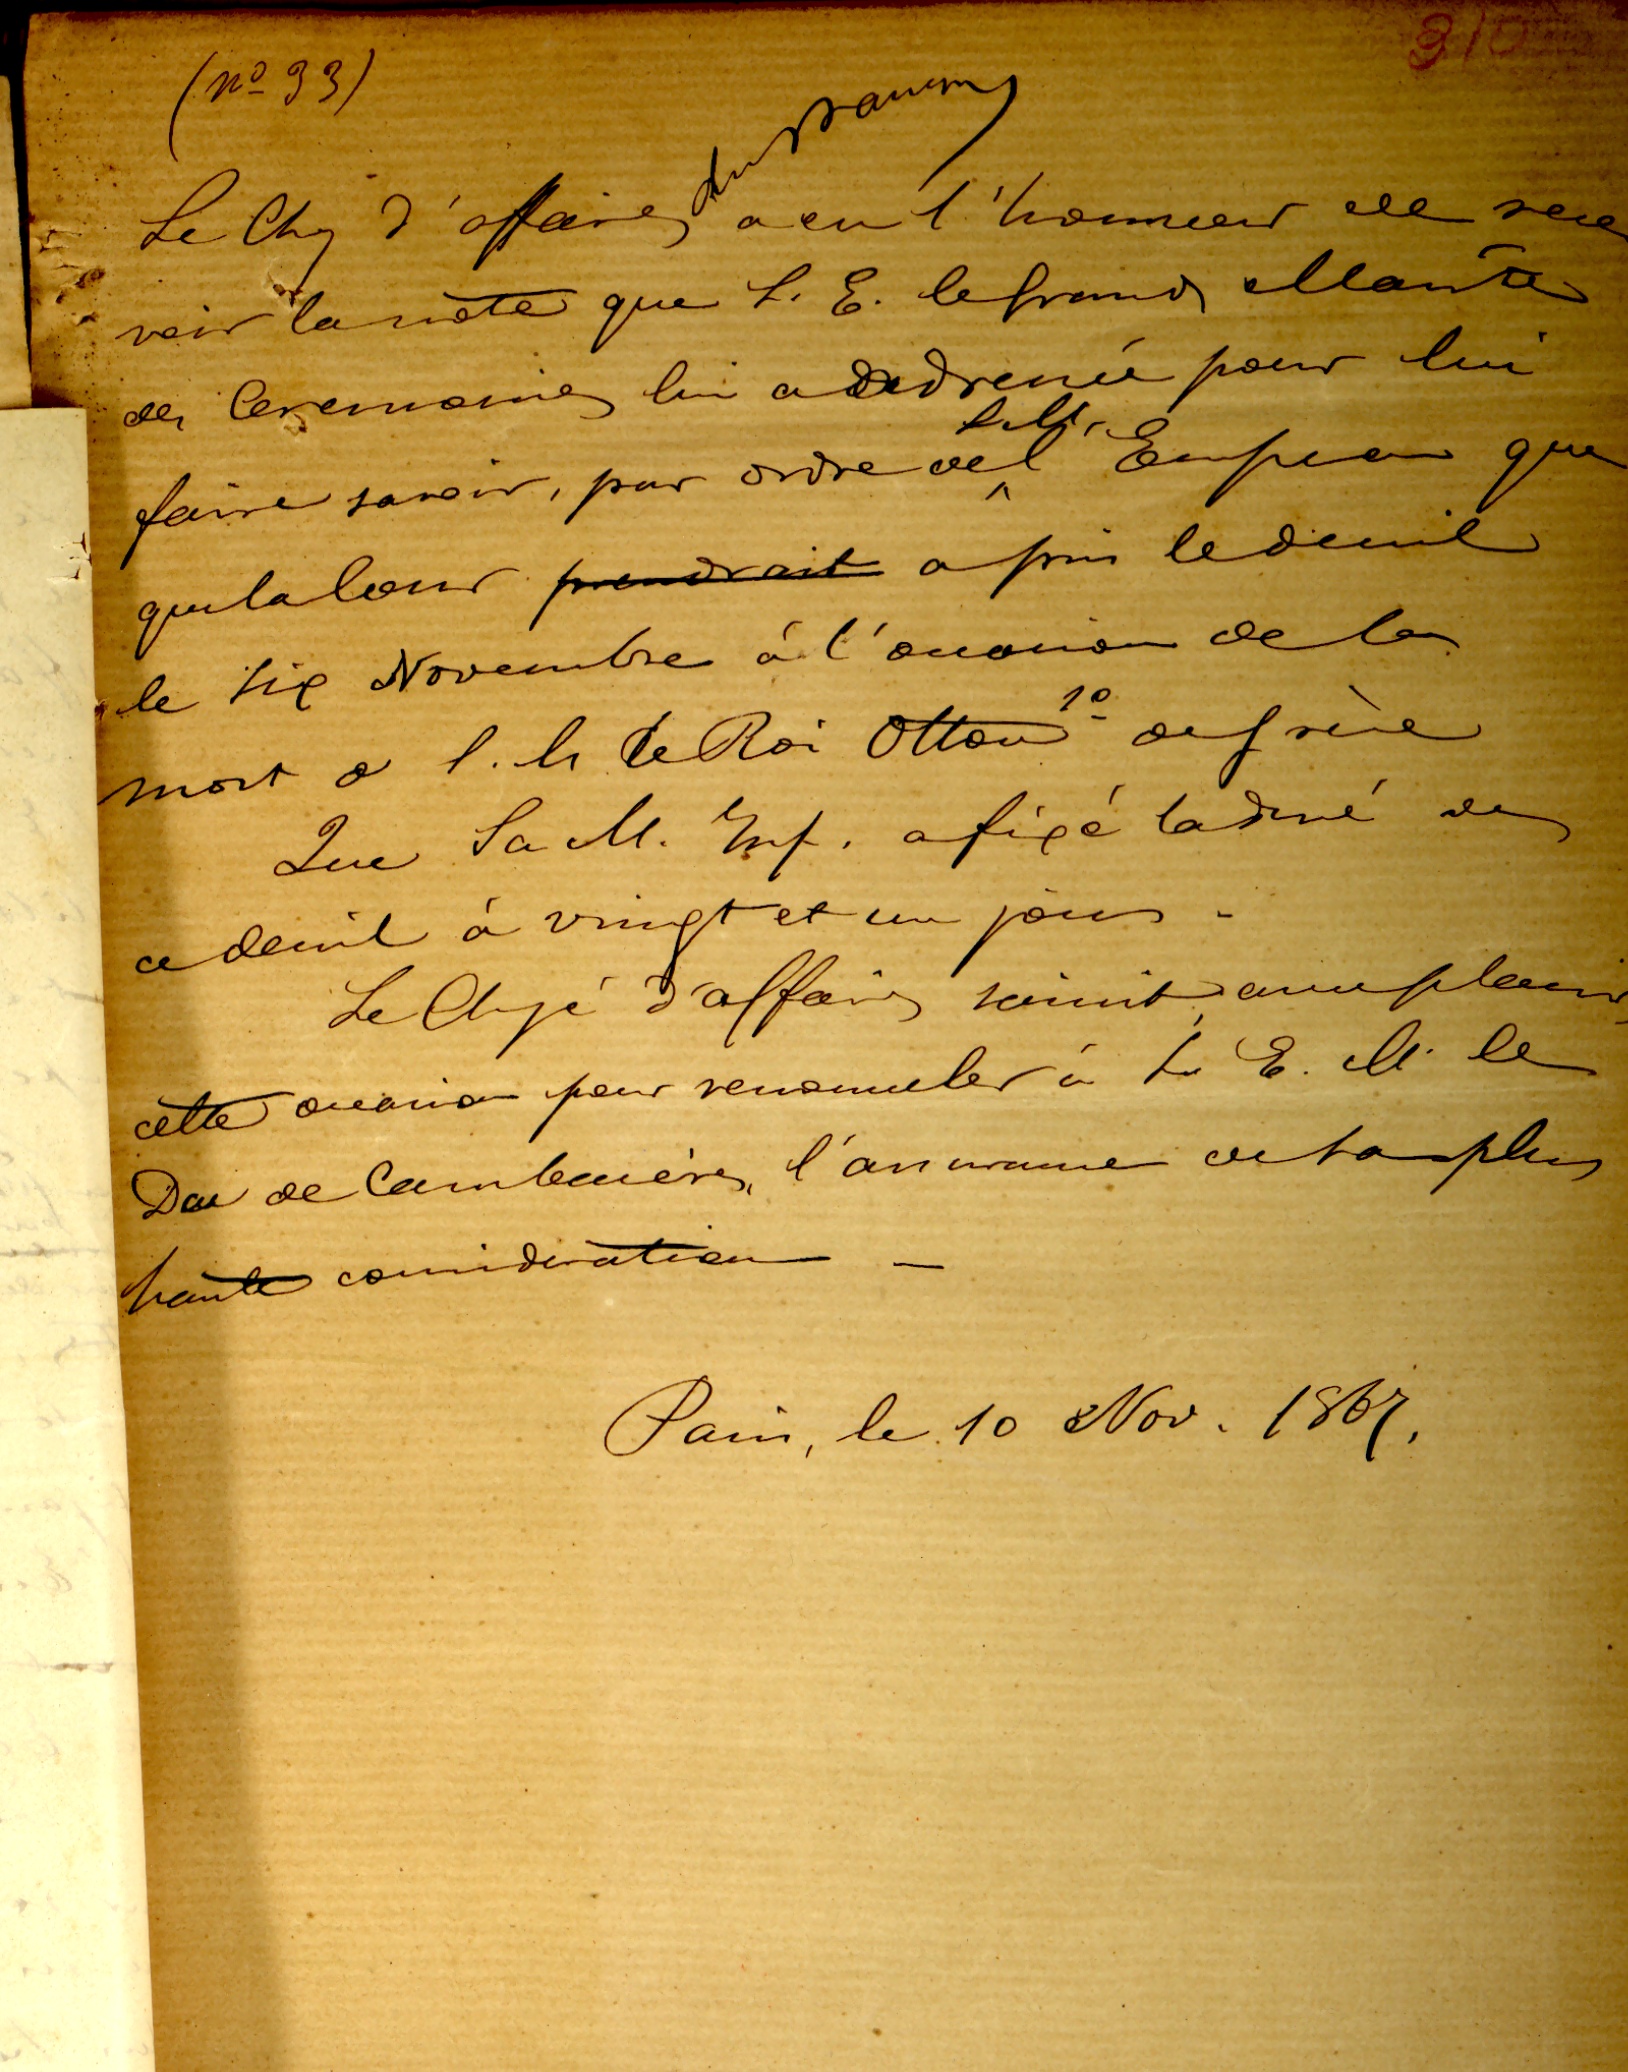 310
(nº 33)
Le Chg d'affaires a eu l'honneur de rece
voir la note que S. E. le Grand Maître
des Ceremonies lui a addressée pour lui
faire savoir, par ordre de S. M. l'Empereur que
que la Cour prendrait a pris le deuil
le six Novembre à l'occasion de la
mort de S. M. le Roi Otton 1º de Grèce
Que Sa M. Imp. a fixé la durée de
ce deuil à vingt et un jours -
Le Chgé d'affaires saisit avec plaisir
cette occasion pour renouveler à S. E. M. le
Duc de Cambacérès, l'assurance de sa plus
haute consideration -
Paris, le 10 Nov. 1867.